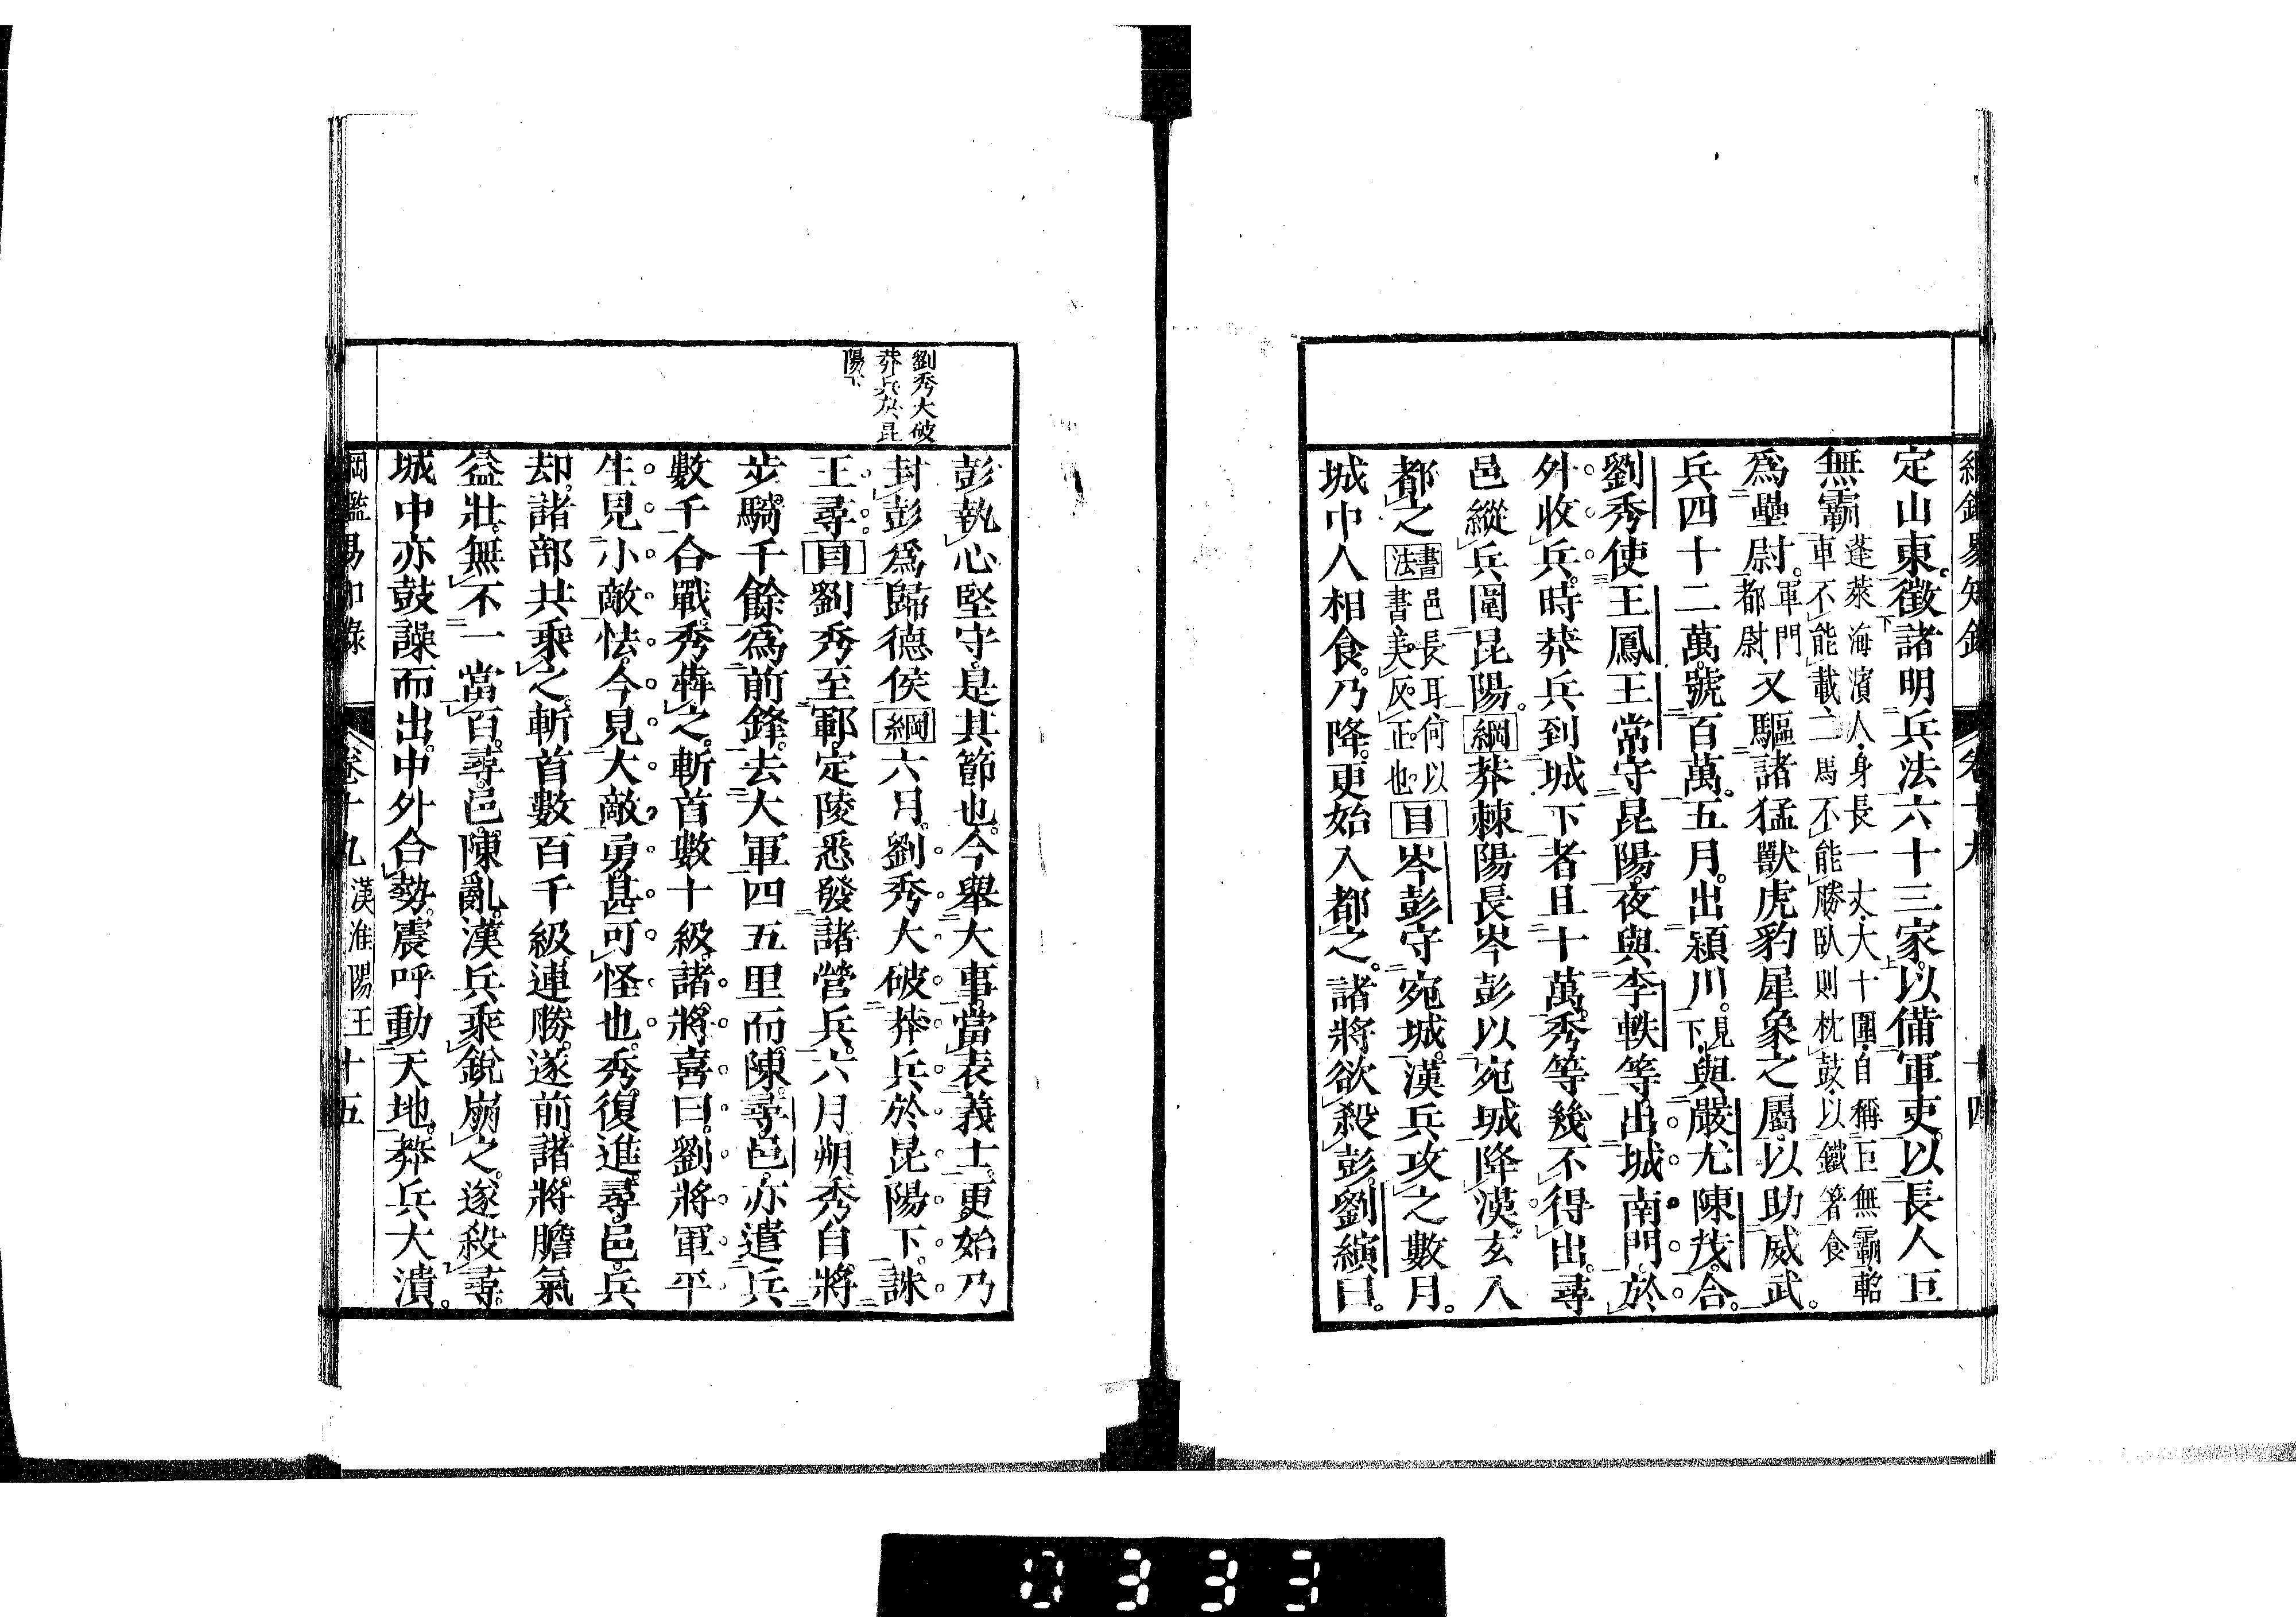 綱鑑易知錄 卷十九 十四
定山東。徵諸明兵法六十三家。以備軍吏。以長人巨
無霸蓬萊海濱人。身長一丈。大十圍。自稱巨無霸。軺
車不能載。三馬不能勝。臥則枕鼓。以鐵箸食
爲壘尉。軍門
都尉。又驅諸猛獸虎豹犀象之屬。以助威武。
兵四十二萬。號百萬。五月。出潁川。見下。與嚴尤陳茂。合。
劉秀使王鳳王常守昆陽。夜與李軼等。出城南門。於
外收兵。時莽兵到城下者且十萬。秀等幾不得出。尋
邑縱兵圍昆陽。綱莽棘陽長岑彭以宛城降漢。玄入
都之書法書邑長耳。何以
書。美反正也。目岑彭守宛城。漢兵攻之數月。
城中人相食。乃降。更始入都之。諸將欲殺彭。劉縯曰。
劉秀大破
莽兵於昆
陽下
彭執心堅守。是其節也。今舉大事。當表義士。更始乃
封彭爲歸德侯綱六月。劉秀大破莽兵於昆陽下。誅
王尋。目劉秀至郾。定陵悉發諸營兵。六月朔。秀自將
步騎千餘爲前鋒。去大軍四五里而陳。尋邑。亦遣兵
數千合戰。秀犇之。斬首數十級。諸將喜曰。劉將軍平
生見小敵怯。今見大敵勇。甚可怪也。秀復進。尋邑兵
却。諸部共乘之。斬首數百千級。連勝。遂前。諸將膽氣
益壯。無不一當百。尋邑陳亂。漢兵乘銳崩之。遂殺尋。
城中亦鼓譟而出。中外合勢。震呼動天地。莽兵大潰。
綱鑑易知錄 卷十九 漢淮陽王 十五
0333